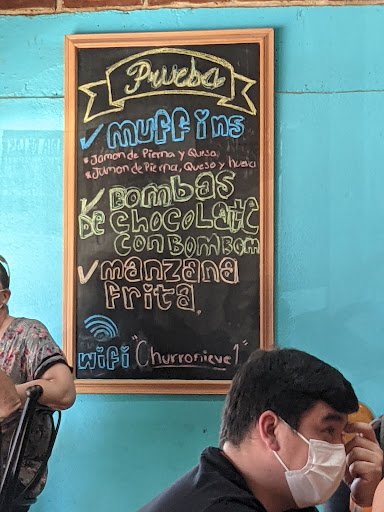 Prueba
✓ muffins
* Jamon de Pierna y Queso.
* Jamon de Pierna, Queso y huevo
✓ Bombas
de chocolate
con Bombom
✓ manzana
frita.
wifi "Churronieve1"